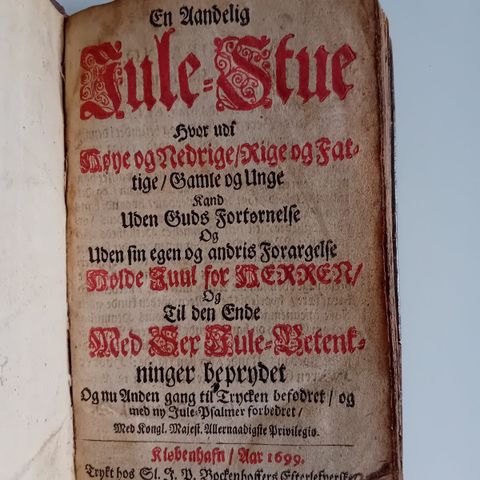 En Aandelig
Jule-Stue
Hvor udi
Høye og Nedrige/Rige og Fat-
tige/Gamle og Unge
Kand
Uden Guds Fortørnelse
Og
Uden sin egen og andris Forargelse
Holde Juul for HERREN/
Og
Til den Ende
Med Sex Jule-Betenk-
ninger beprydet
Og nu Anden gang til Trycken befodret/ og
med ny Jule-Psalmer forbedret/
Med Kongl. Majest. Allernaadigste Privilegio.
Kiøbenhafn/ Aar 1699.
Trykt hos Sl. J. P. Bockenhoffers Efterlefverske